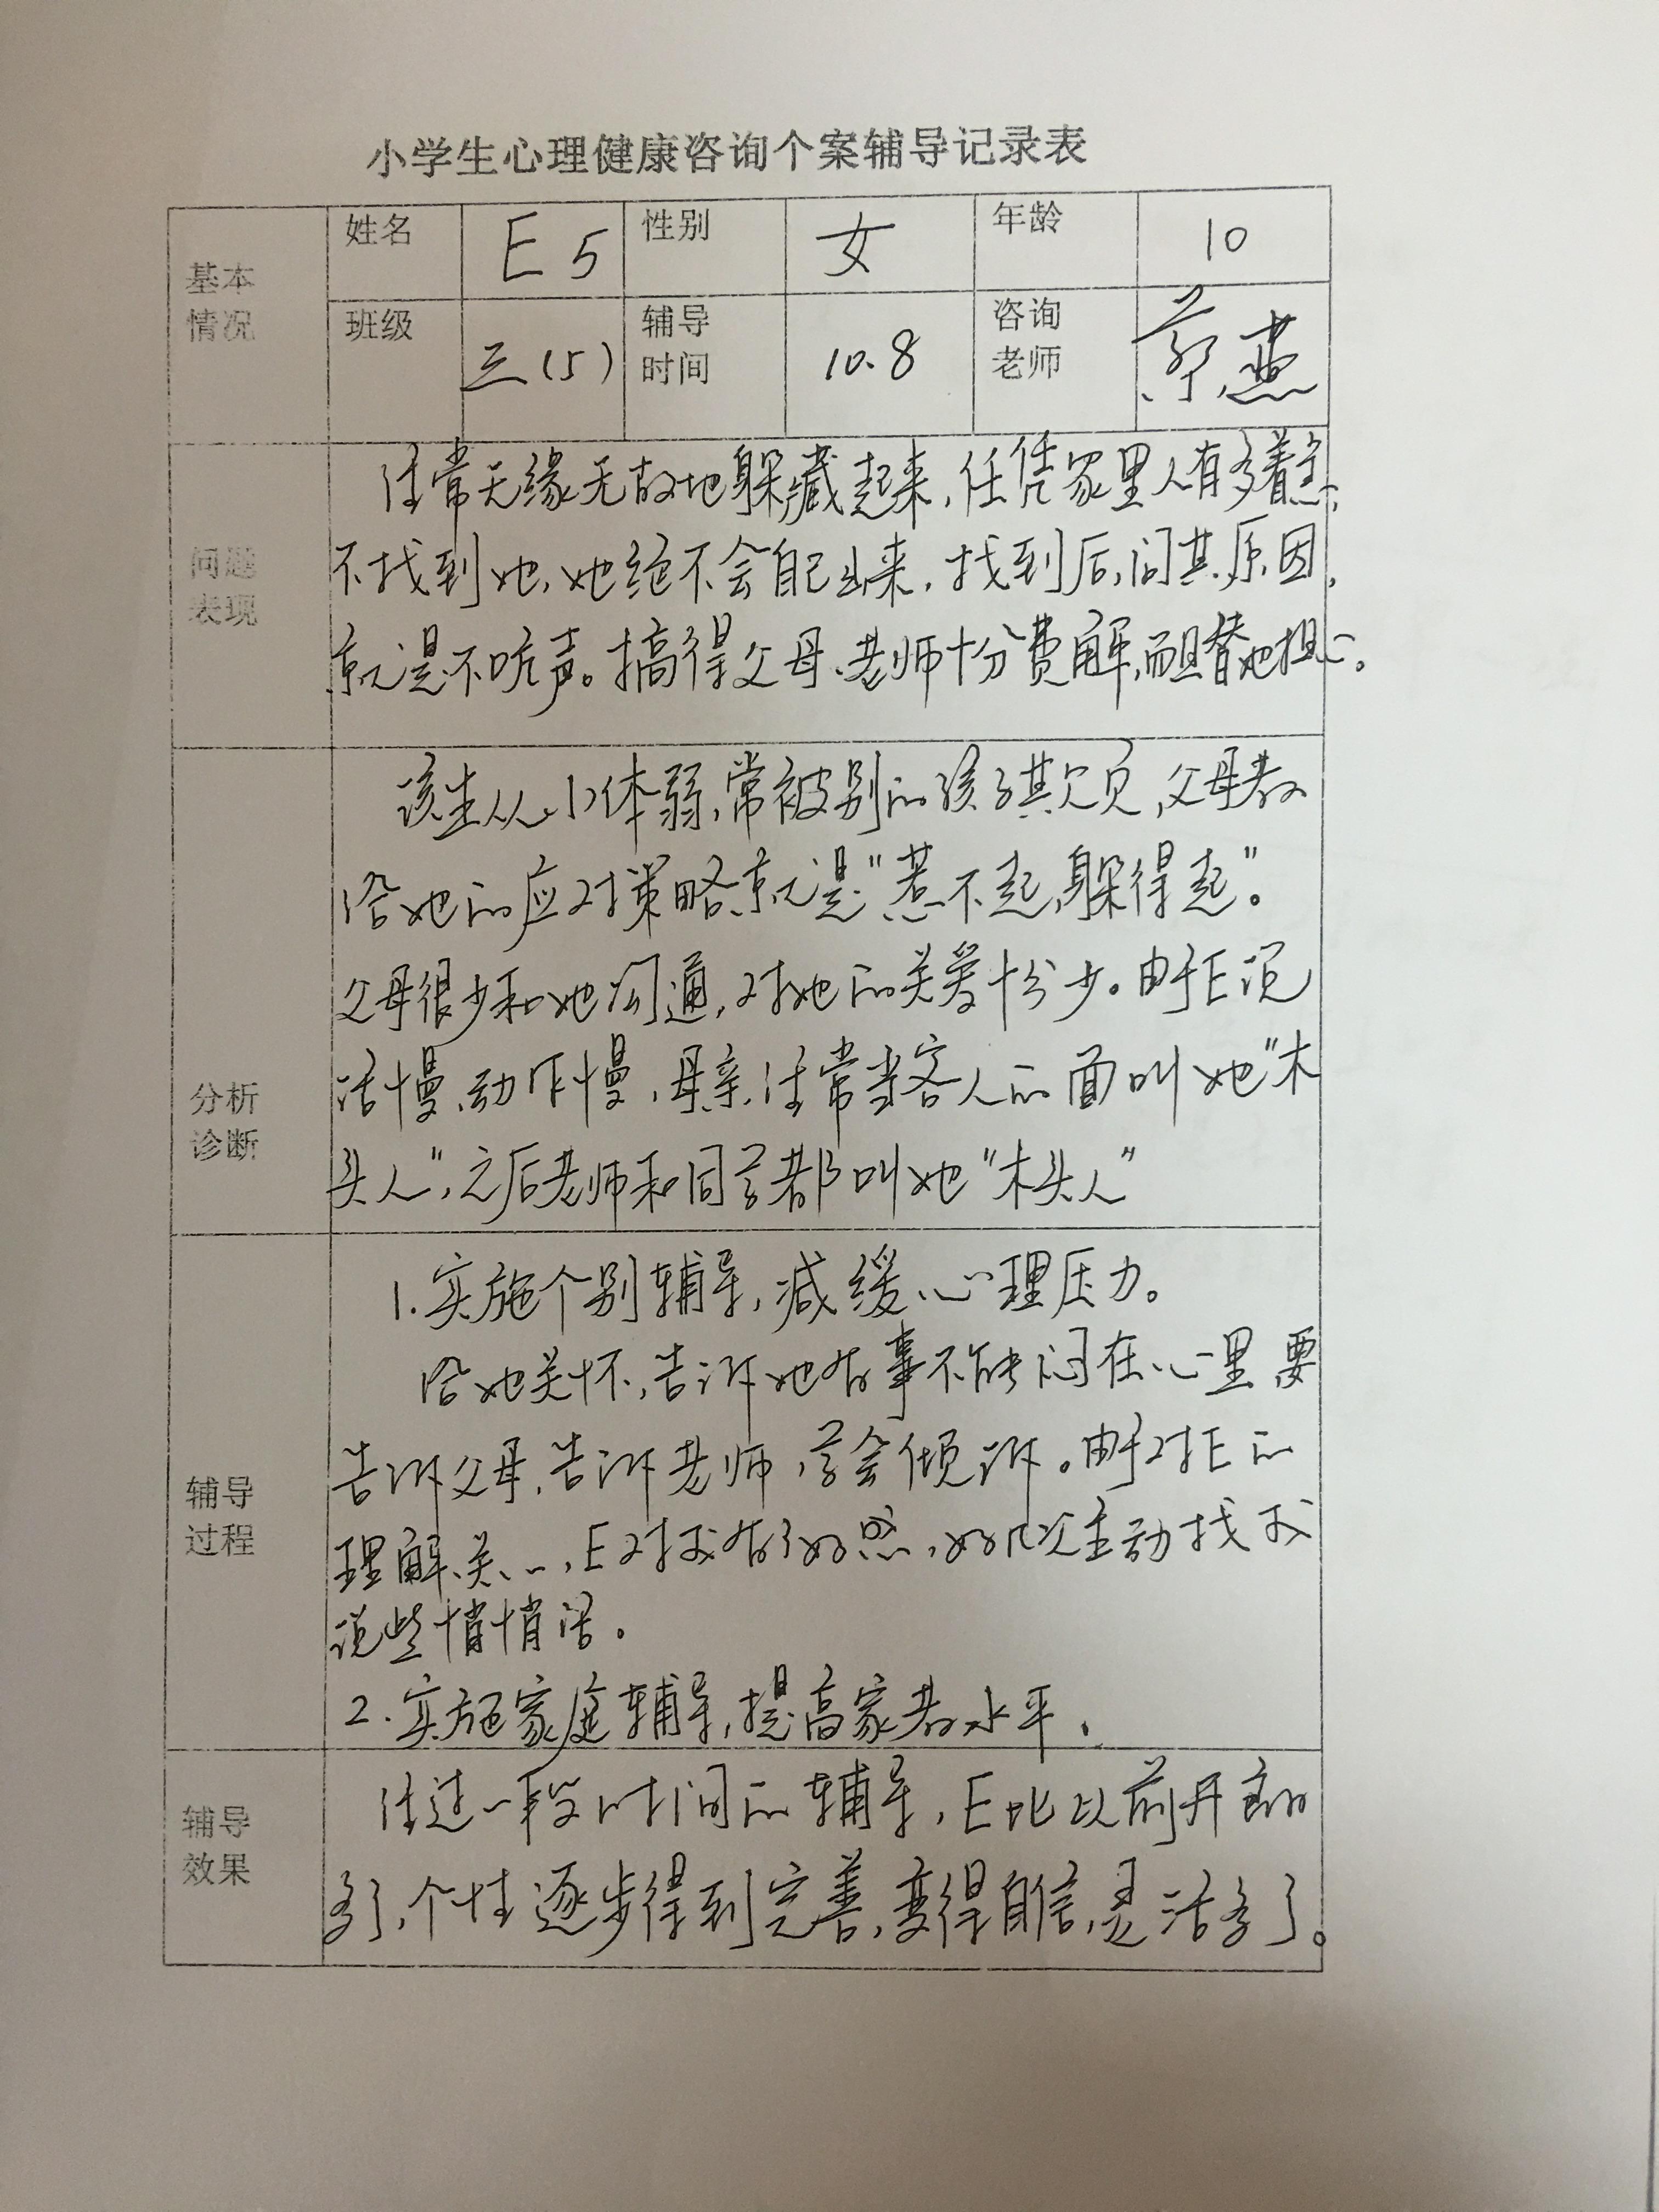 小学生心理健康咨询个案辅导记录表
基本情况 姓名 E5 性别 女 年龄 10
班级 三(5) 辅导时间 10.8 咨询老师 燕
问题表现
经常无缘无故地躲藏起来,任凭家里人有多着急,
不找到她,她绝不会自己出来,找到后,问其原因,
就是不吭声。搞得父母、老师十分费解,而且替她担心。
分析诊断
该生从小体弱,常被别的孩子欺负,父母教
给她的应对策略就是"惹不起,躲得起"。
父母很少和她沟通,对她的关爱十分少。由于E说
话慢、动作慢,母亲经常当客人的面叫她"木
头人",之后老师和同学都叫她"木头人"
辅导过程
1.实施个别辅导,减缓心理压力。
给她关怀,告诉她有事不能闷在心里,要
告诉父母,告诉老师,学会倾诉。由于对E的
理解、关心,E对我有了好感,好几次主动找我
说些悄悄话。
2.实施家庭辅导,提高家教水平。
辅导效果
经过一段时间的辅导,E比以前开朗
多了,个性逐步得到完善,变得自信,灵活多了。